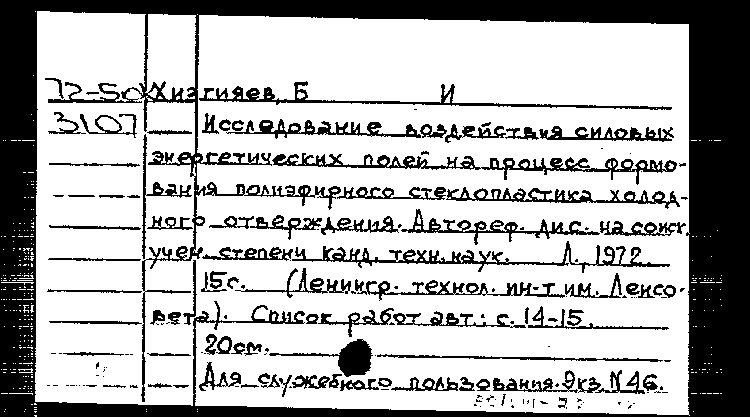 72-50к Хизгияев, Б И
3107 Исследование воздействия силовых
энергетических полей на процесс формо-
вания полиэфирного стеклопластика холод-
ного отверждения. Автореф. дис. на соиск.
учен. степени канд. техн. наук. Л., 1972.
15с. (Ленингр. технол. ин-т им. Ленсо-
вета). Список работ авт.: с. 14-15.
20см.
Для служебного пользования. Экз. N46.